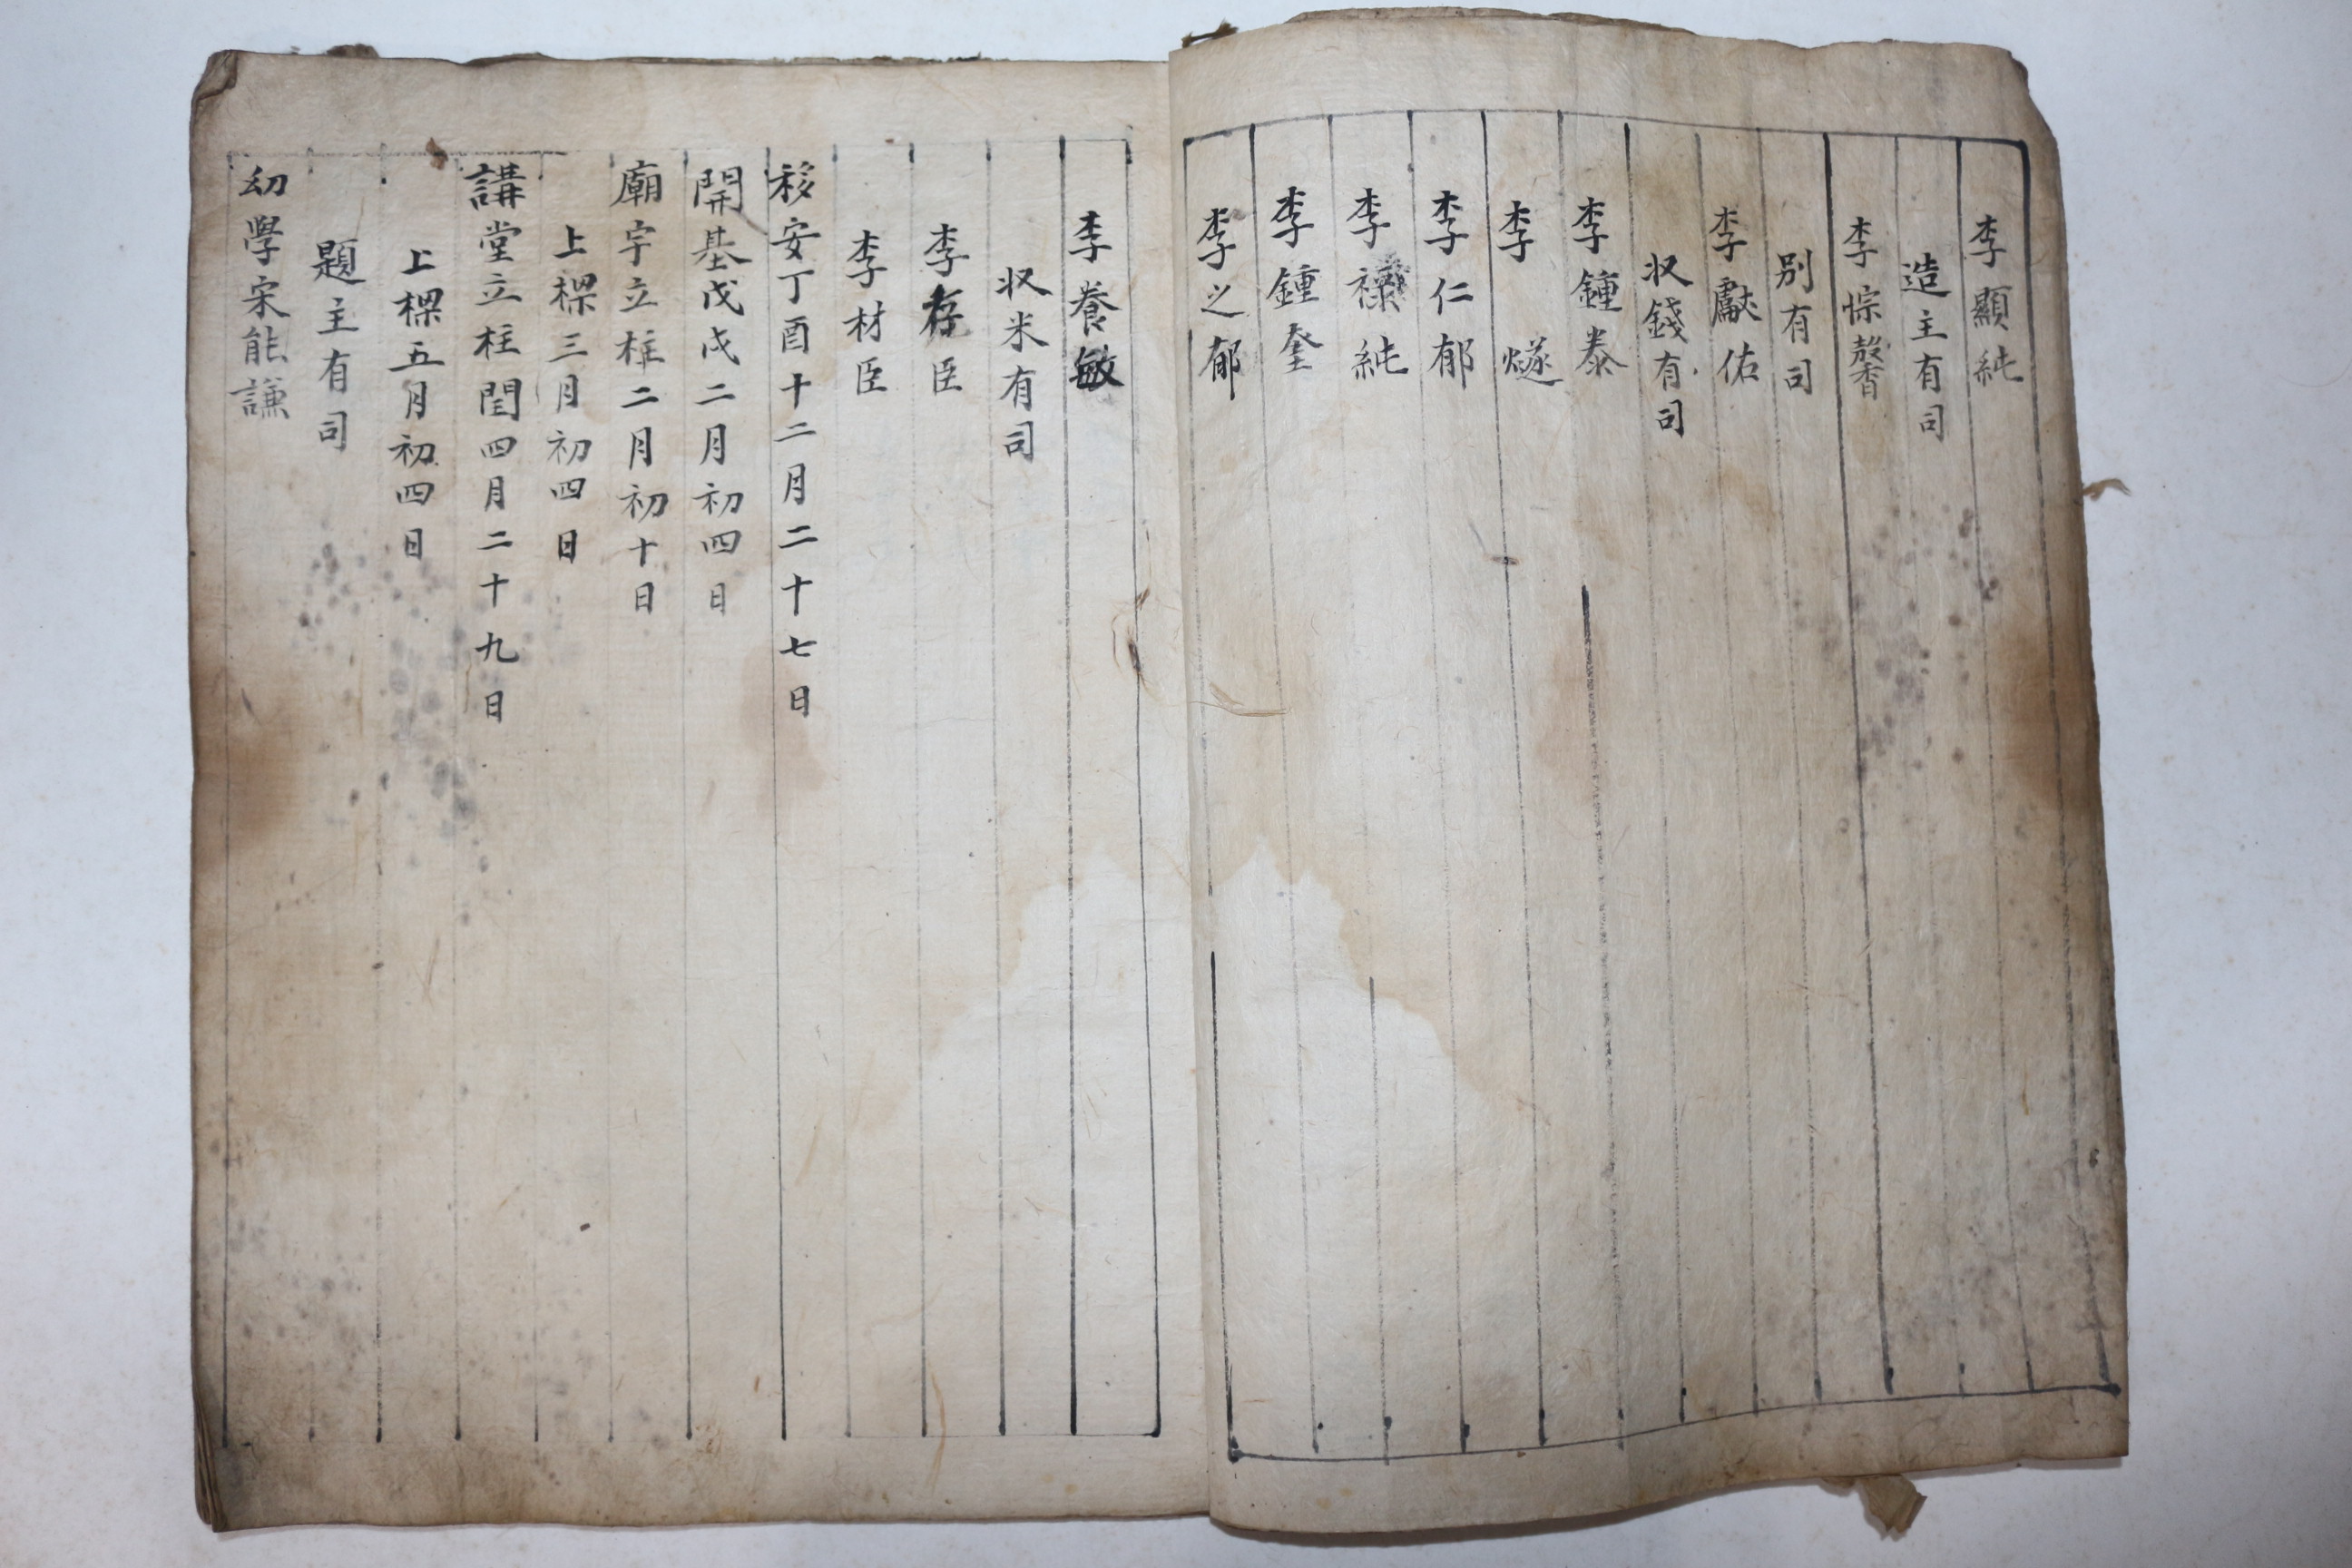 李顯純
造主有司
李悰馨
別有司
李獻佑
収錢有司
李鍾泰
李燧
李仁郁
李純
李鍾奎
李之郁
李養敏
収米有司
李存臣
李材臣
移安丁酉十二月二十七日
開基戊戌二月初四日
廟宇立柱二月初十日
上樑三月初四日
講堂立柱閏四月二十九日
上樑五月初四日
題主有司
幼學宋能謙